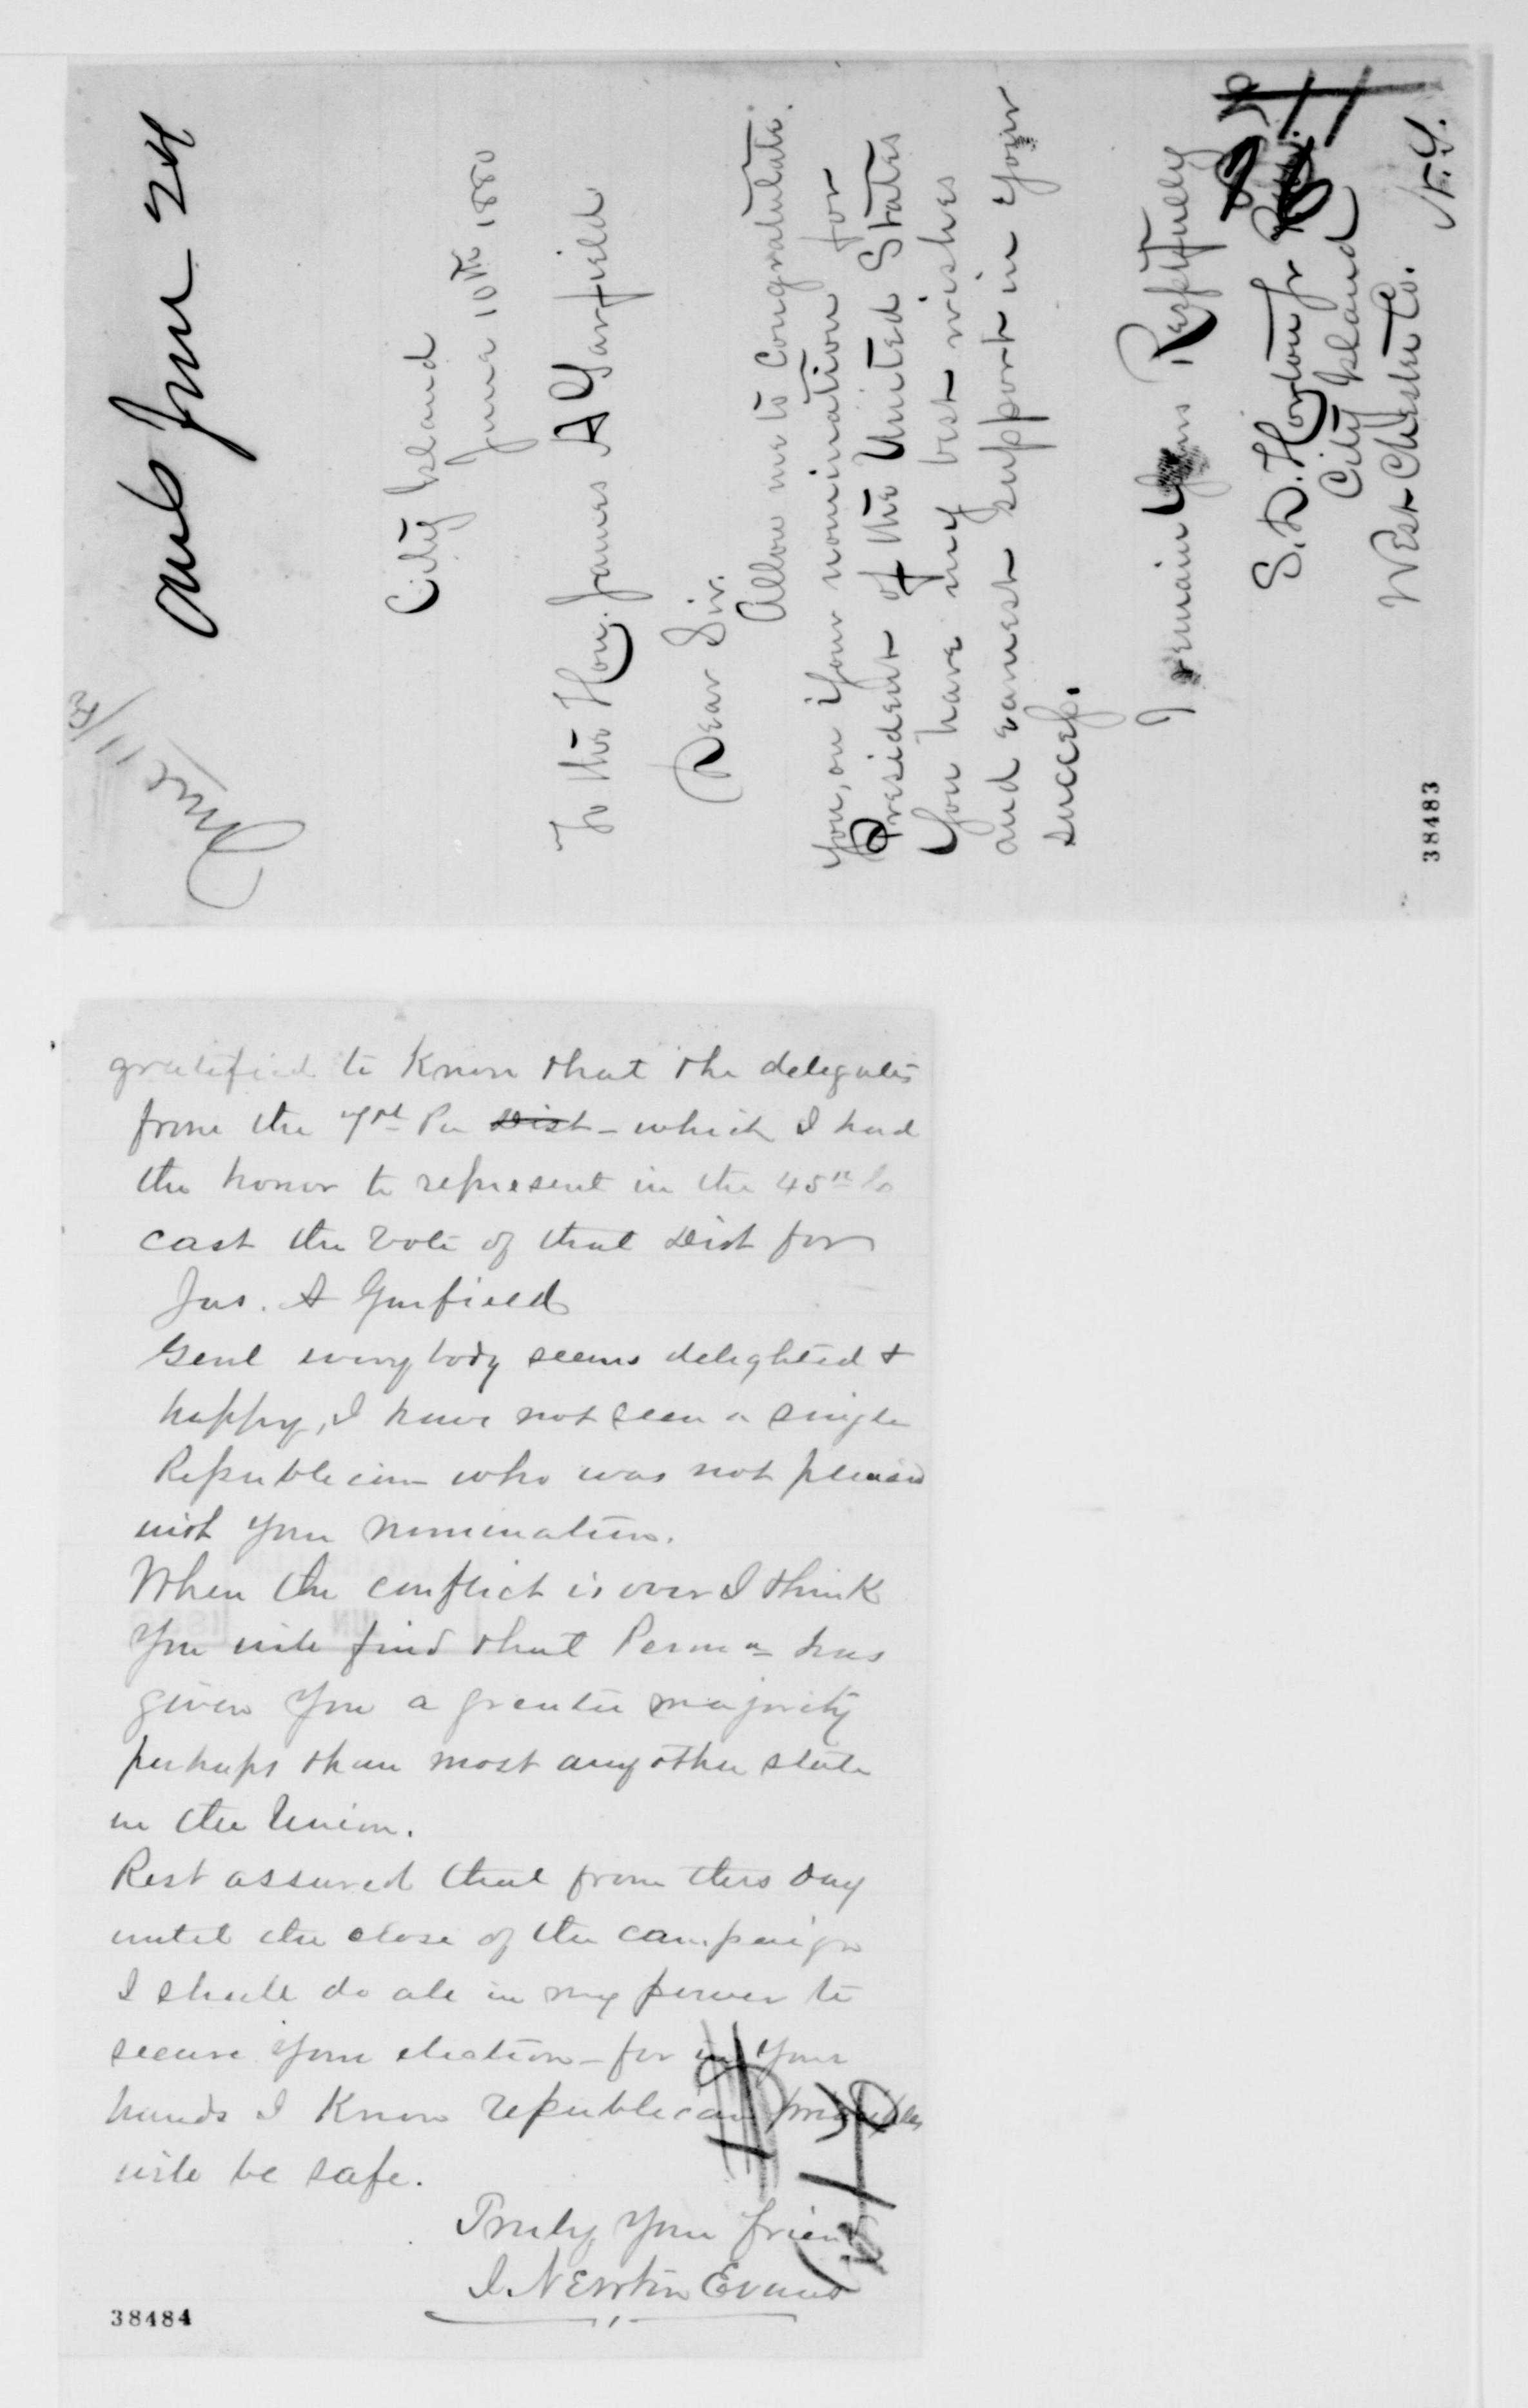 June 11/80
Ans June 24
City Island
June 10th 1880
To the Hon. James A Garfield
Dear Sir.
Allow me to Congratulate.
you, on your nomination for
President of the United States
You have my best wishes
and earnest support in your
success.
I remain Yours Respectfully
S. D. Horton Jr
City Island
West Chester Co. N.Y.
38483
gratified to know that the delegates
from the 7th Pa Dist - which I had
the honor to represent in the 45th Co
cast the vote of that Dist for
Jas. A Garfield
Genl everybody seems delighted &
happy, I have not seen a single
Republican who was not pleased
with your nomination.
When the conflict is over I think
you will find that Penna has
given you a greater majority
perhaps than most any other state
in the Union.
Rest assured that from this day
until the close of the campaign
I shall do all in my power to
secure your election - for in your
hands I know republican principles
will be safe.
Truly your friend
I. Newton Evans
38484